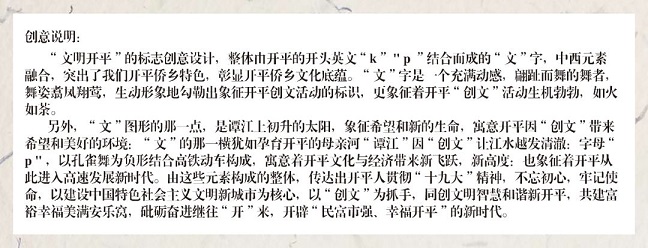 创意说明：
“文明开平”的标志创意设计，整体由开平的开头英文“k”"p"结合而成的“文”字，中西元素
融合，突出了我们开平侨乡特色，彰显开平侨乡文化底蕴。“文”字是一个充满动感，翩跹而舞的舞者，
舞姿鸾凤翔莺，生动形象地勾勒出象征开平创文活动的标识，更象征着开平“创文”活动生机勃勃，如火
如荼。
另外，“文”图形的那一点，是谭江上初升的太阳，象征希望和新的生命，寓意开平因“创文”带来
希望和美好的环境；“文”的那一横犹如孕育开平的母亲河“谭江”因“创文”让江水越发清澈；字母“
p"，以孔雀舞为负形结合高铁动车构成，寓意着开平文化与经济带来新飞跃，新高度；也象征着开平从
此进入高速发展新时代。由这些元素构成的整体，传达出开平人贯彻“十九大”精神，不忘初心，牢记使
命，以建设中国特色社会主义文明新城市为核心，以“创文”为抓手，同创文明智慧和谐新开平，共建富
裕幸福美满安乐窝，砥砺奋进继往“开”来，开辟“民富市强、幸福开平”的新时代。